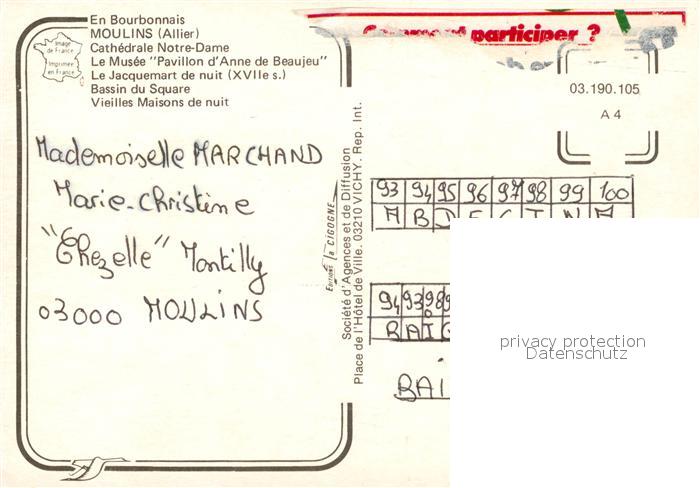 En Bourbonnais
MOULINS (Allier)
Cathédrale Notre-Dame
Le Musée "Pavillon d'Anne de Beaujeu"
Le Jacquemart de nuit (XVIIe s.)
Bassin du Square
Vieilles Maisons de nuit
Image de France
Imprimée en France
participer ?
03.190.105
A 4
Mademoiselle MARCHAND
Marie-Christine
"Chezelle" Montilly
03000 MOULINS
Éditions la CIGOGNE
Société d'Agences et de Diffusion
Place de l'Hôtel de Ville. 03210 VICHY. Rep. Int.
93 94 95 96 97 98 99 100
94 93 98
BAI
privacy protection
Datenschutz